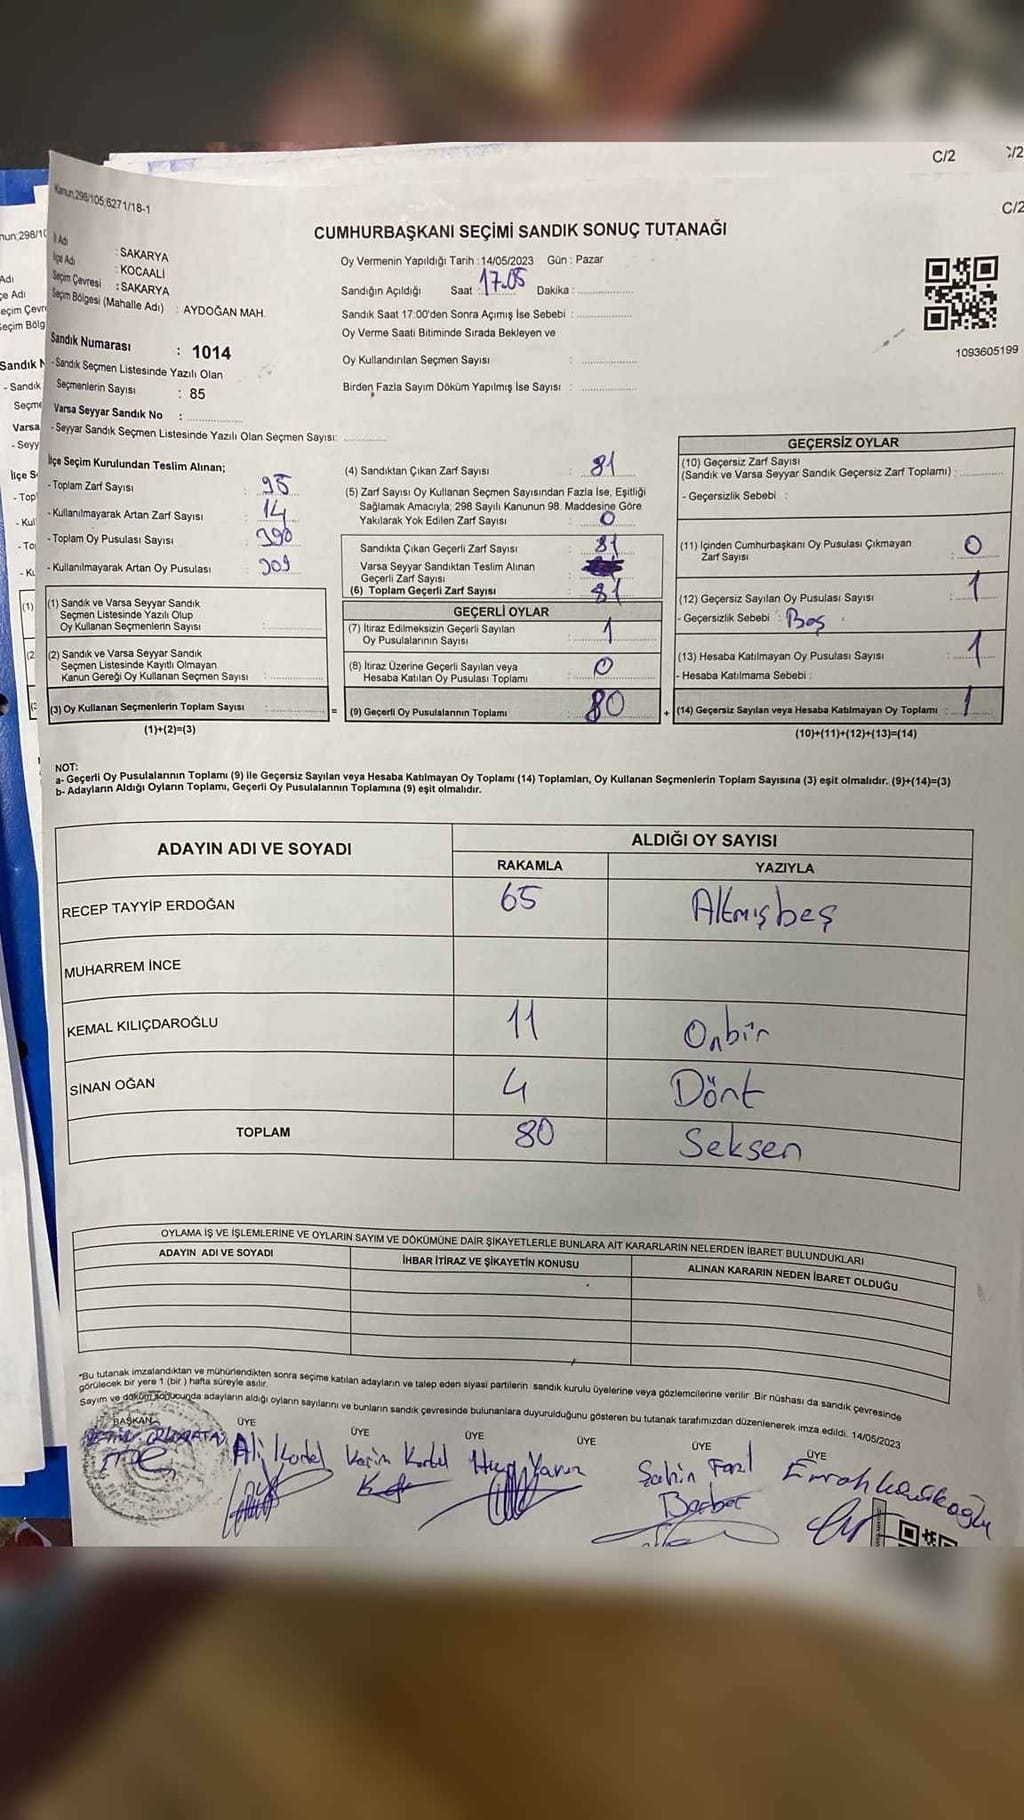 C/2
C/2
Kanun;298/105;6271/18-1
CUMHURBAŞKANI SEÇİMİ SANDIK SONUÇ TUTANAĞI
İl Adı : SAKARYA
İlçe Adı : KOCAALİ
Seçim Çevresi : SAKARYA
Seçim Bölgesi (Mahalle Adı) : AYDOĞAN MAH.
Sandık Numarası : 1014
- Sandık Seçmen Listesinde Yazılı Olan
Seçmenlerin Sayısı : 85
Varsa Seyyar Sandık No :
- Seyyar Sandık Seçmen Listesinde Yazılı Olan Seçmen Sayısı:
Oy Vermenin Yapıldığı Tarih :14/05/2023 Gün : Pazar
Sandığın Açıldığı Saat : 17.05 Dakika :
Sandık Saat 17:00'den Sonra Açımış İse Sebebi :
Oy Verme Saati Bitiminde Sırada Bekleyen ve
Oy Kullandırılan Seçmen Sayısı :
Birden Fazla Sayım Döküm Yapılmış İse Sayısı :
1093605199
İlçe Seçim Kurulundan Teslim Alınan;
- Toplam Zarf Sayısı : 95
- Kullanılmayarak Artan Zarf Sayısı : 14
- Toplam Oy Pusulası Sayısı : 390
- Kullanılmayarak Artan Oy Pusulası : 309
(1) Sandık ve Varsa Seyyar Sandık
Seçmen Listesinde Yazılı Olup
Oy Kullanan Seçmenlerin Sayısı :
(2) Sandık ve Varsa Seyyar Sandık
Seçmen Listesinde Kayıtlı Olmayan
Kanun Gereği Oy Kullanan Seçmen Sayısı :
(3) Oy Kullanan Seçmenlerin Toplam Sayısı :
(1)+(2)=(3)
(4) Sandıktan Çıkan Zarf Sayısı : 81
(5) Zarf Sayısı Oy Kullanan Seçmen Sayısından Fazla İse, Eşitliği
Sağlamak Amacıyla, 298 Sayılı Kanunun 98. Maddesine Göre
Yakılarak Yok Edilen Zarf Sayısı : 0
Sandıkta Çıkan Geçerli Zarf Sayısı : 81
Varsa Seyyar Sandıktan Teslim Alınan
Geçerli Zarf Sayısı :
(6) Toplam Geçerli Zarf Sayısı : 81
GEÇERLİ OYLAR
(7) İtiraz Edilmeksizin Geçerli Sayılan
Oy Pusulalarının Sayısı : 1
(8) İtiraz Üzerine Geçerli Sayılan veya
Hesaba Katılan Oy Pusulası Toplamı : 0
= (9) Geçerli Oy Pusulalarının Toplamı : 80
GEÇERSİZ OYLAR
(10) Geçersiz Zarf Sayısı
(Sandık ve Varsa Seyyar Sandık Geçersiz Zarf Toplamı) :
- Geçersizlik Sebebi :
(11) İçinden Cumhurbaşkanı Oy Pusulası Çıkmayan
Zarf Sayısı : 0
(12) Geçersiz Sayılan Oy Pusulası Sayısı : 1
- Geçersizlik Sebebi : Boş
(13) Hesaba Katılmayan Oy Pusulası Sayısı : 1
- Hesaba Katılmama Sebebi :
+ (14) Geçersiz Sayılan veya Hesaba Katılmayan Oy Toplamı : 1
(10)+(11)+(12)+(13)=(14)
NOT:
a- Geçerli Oy Pusulalarının Toplamı (9) ile Geçersiz Sayılan veya Hesaba Katılmayan Oy Toplamı (14) Toplamları, Oy Kullanan Seçmenlerin Toplam Sayısına (3) eşit olmalıdır. (9)+(14)=(3)
b- Adayların Aldığı Oyların Toplamı, Geçerli Oy Pusulalarının Toplamına (9) eşit olmalıdır.
ADAYIN ADI VE SOYADI ALDIĞI OY SAYISI
RAKAMLA YAZIYLA
RECEP TAYYİP ERDOĞAN 65 Altmışbeş
MUHARREM İNCE
KEMAL KILIÇDAROĞLU 11 Onbir
SİNAN OĞAN 4 Dört
TOPLAM 80 Seksen
OYLAMA İŞ VE İŞLEMLERİNE VE OYLARIN SAYIM VE DÖKÜMÜNE DAİR ŞİKAYETLERLE BUNLARA AİT KARARLARIN NELERDEN İBARET BULUNDUKLARI
ADAYIN ADI VE SOYADI İHBAR İTİRAZ VE ŞİKAYETİN KONUSU ALINAN KARARIN NEDEN İBARET OLDUĞU
*Bu tutanak imzalandıktan ve mühürlendikten sonra seçime katılan adayların ve talep eden siyasi partilerin sandık kurulu üyelerine veya gözlemcilerine verilir .Bir nüshası da sandık çevresinde
görülecek bir yere 1 (bir ) hafta süreyle asılır.
Sayım ve döküm sonucunda adayların aldığı oyların sayılarını ve bunların sandık çevresinde bulunanlara duyurulduğunu gösteren bu tutanak tarafımızdan düzenlenerek imza edildi. 14/05/2023
BAŞKAN ÜYE ÜYE ÜYE ÜYE ÜYE ÜYE
Ali Kordel Şahin Fazıl
Berber